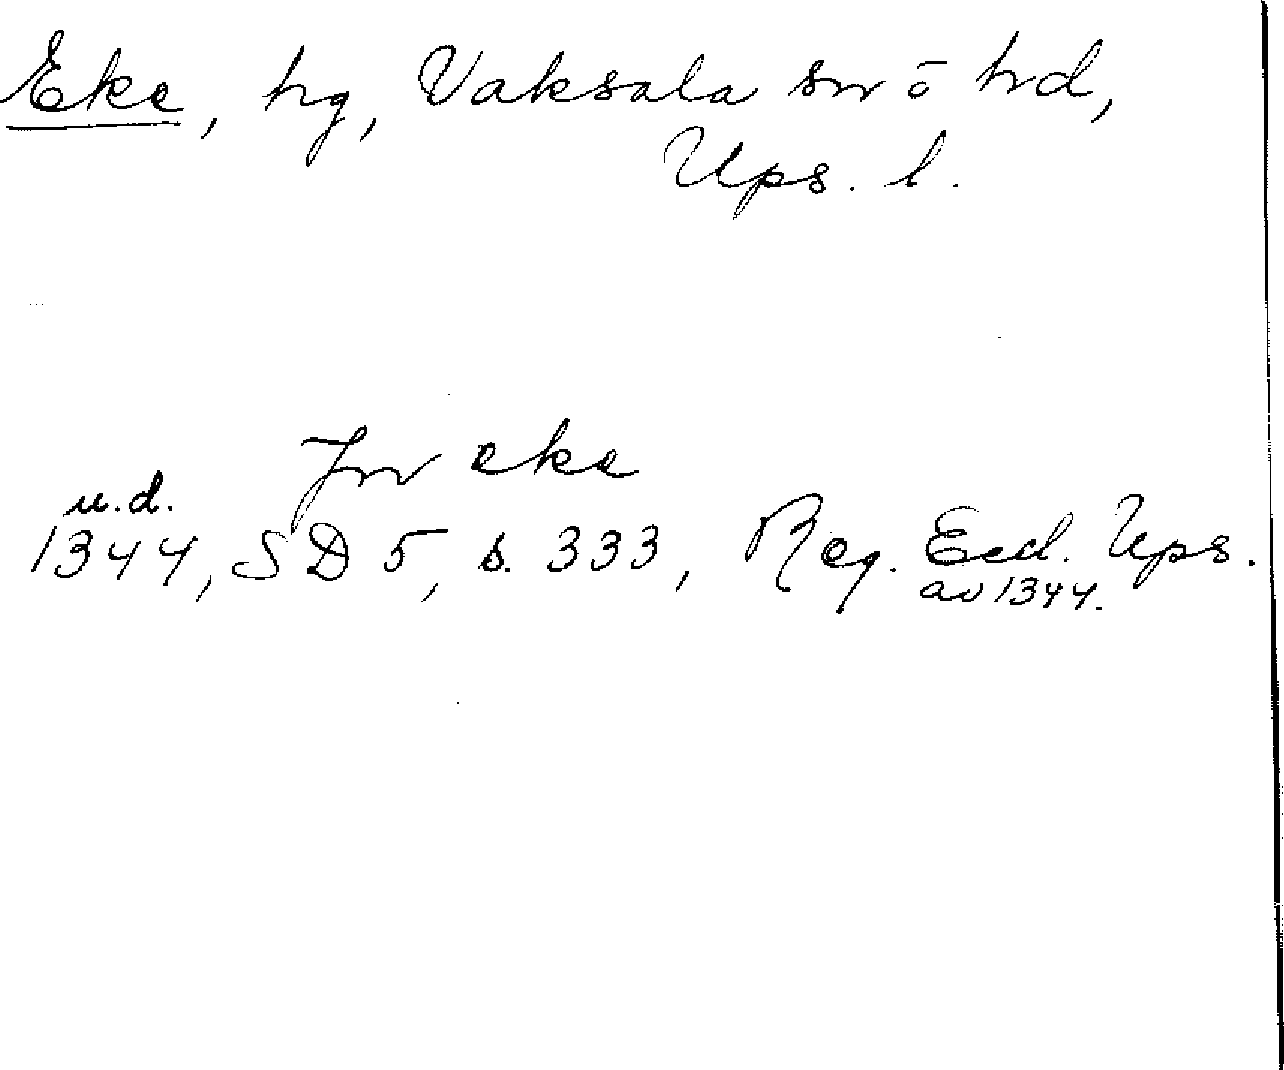 Eke, hg, Vaksala sn ō hd,
Ups. l.
Jn eke
u.d.
1344, SD 5, s. 333, Reg. Eccl. Ups.
av 1344.